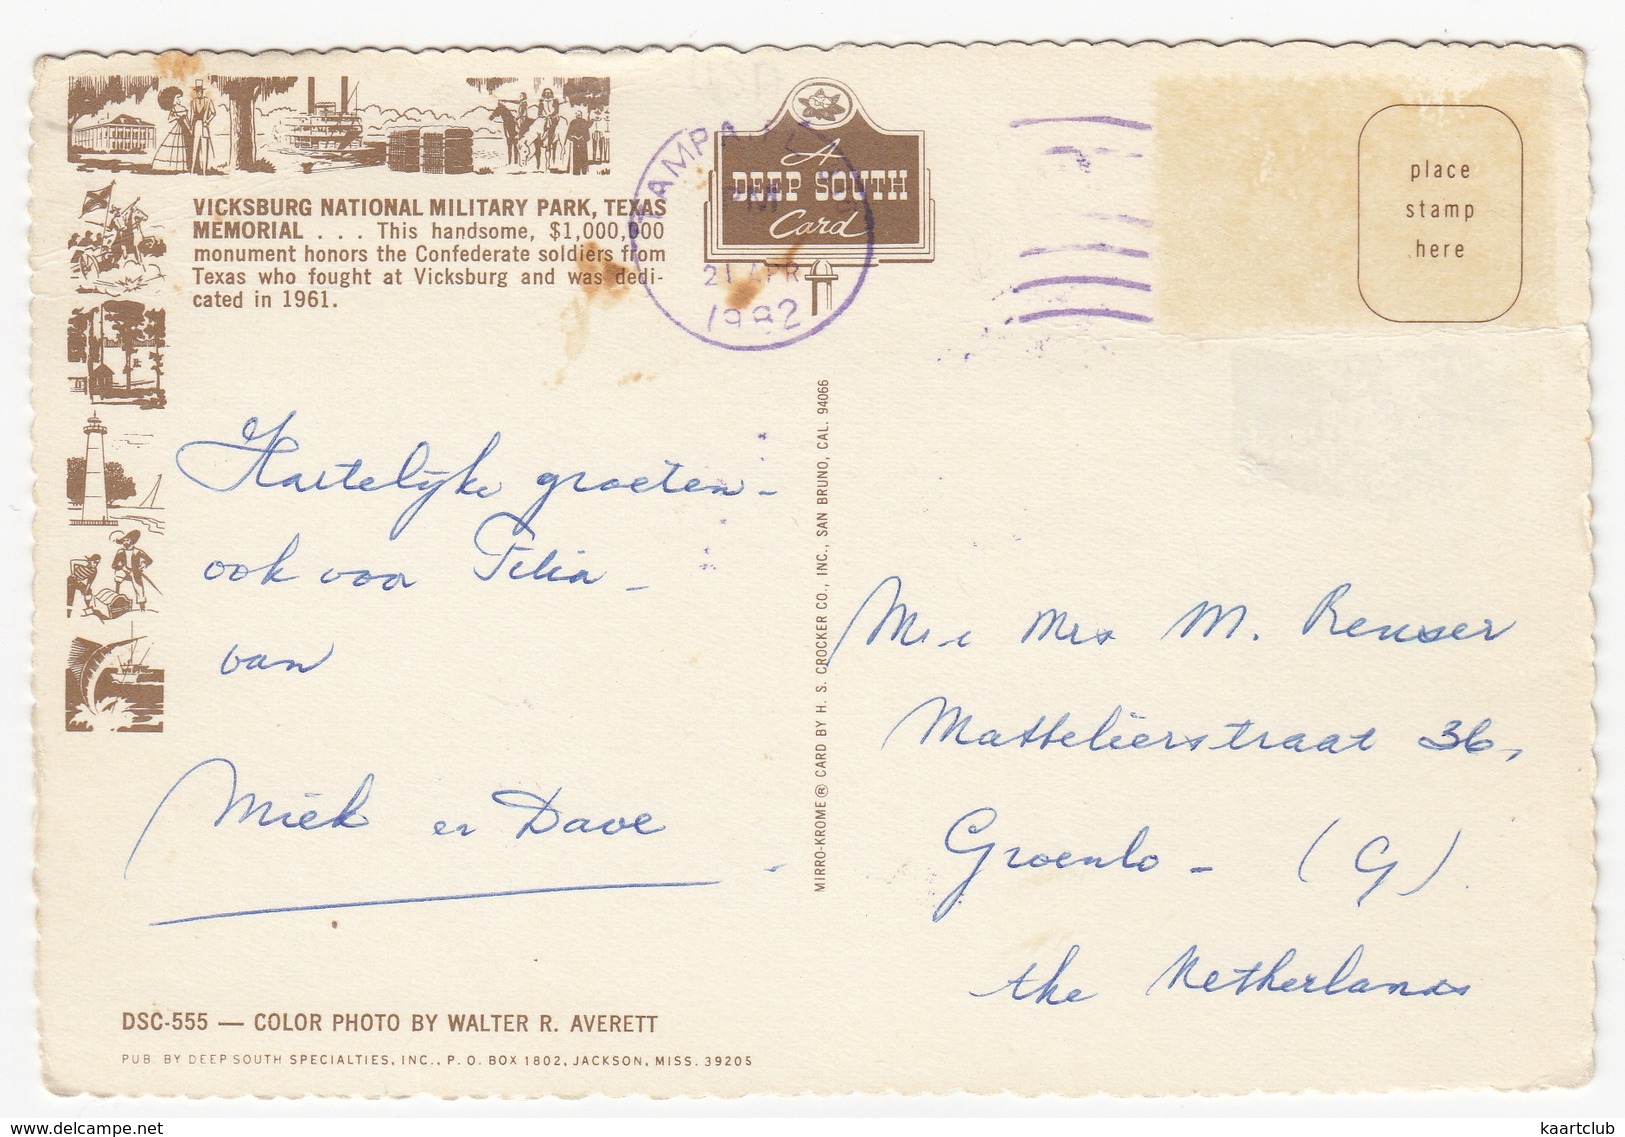 VICKSBURG NATIONAL MILITARY PARK, TEXAS
MEMORIAL . . . This handsome, $1,000,000
monument honors the Confederate soldiers from
Texas who fought at Vicksburg and was dedi-
cated in 1961.
A
DEEP SOUTH
Card
TAMPA, FL
PM
21 APR
1992
place
stamp
here
Hartelijke groeten -
ook voor Tilia -
van
Miek en Dave
MIRRO-KROME® CARD BY H. S. CROCKER CO., INC., SAN BRUNO, CAL. 94066
Mr & Mrs M. Reuser
Matteliërstraat 36,
Groenlo - (G)
the Netherlands
DSC-555 — COLOR PHOTO BY WALTER R. AVERETT
PUB. BY DEEP SOUTH SPECIALTIES, INC., P. O. BOX 1802, JACKSON, MISS. 39205
www.delcampe.net
kaartclub